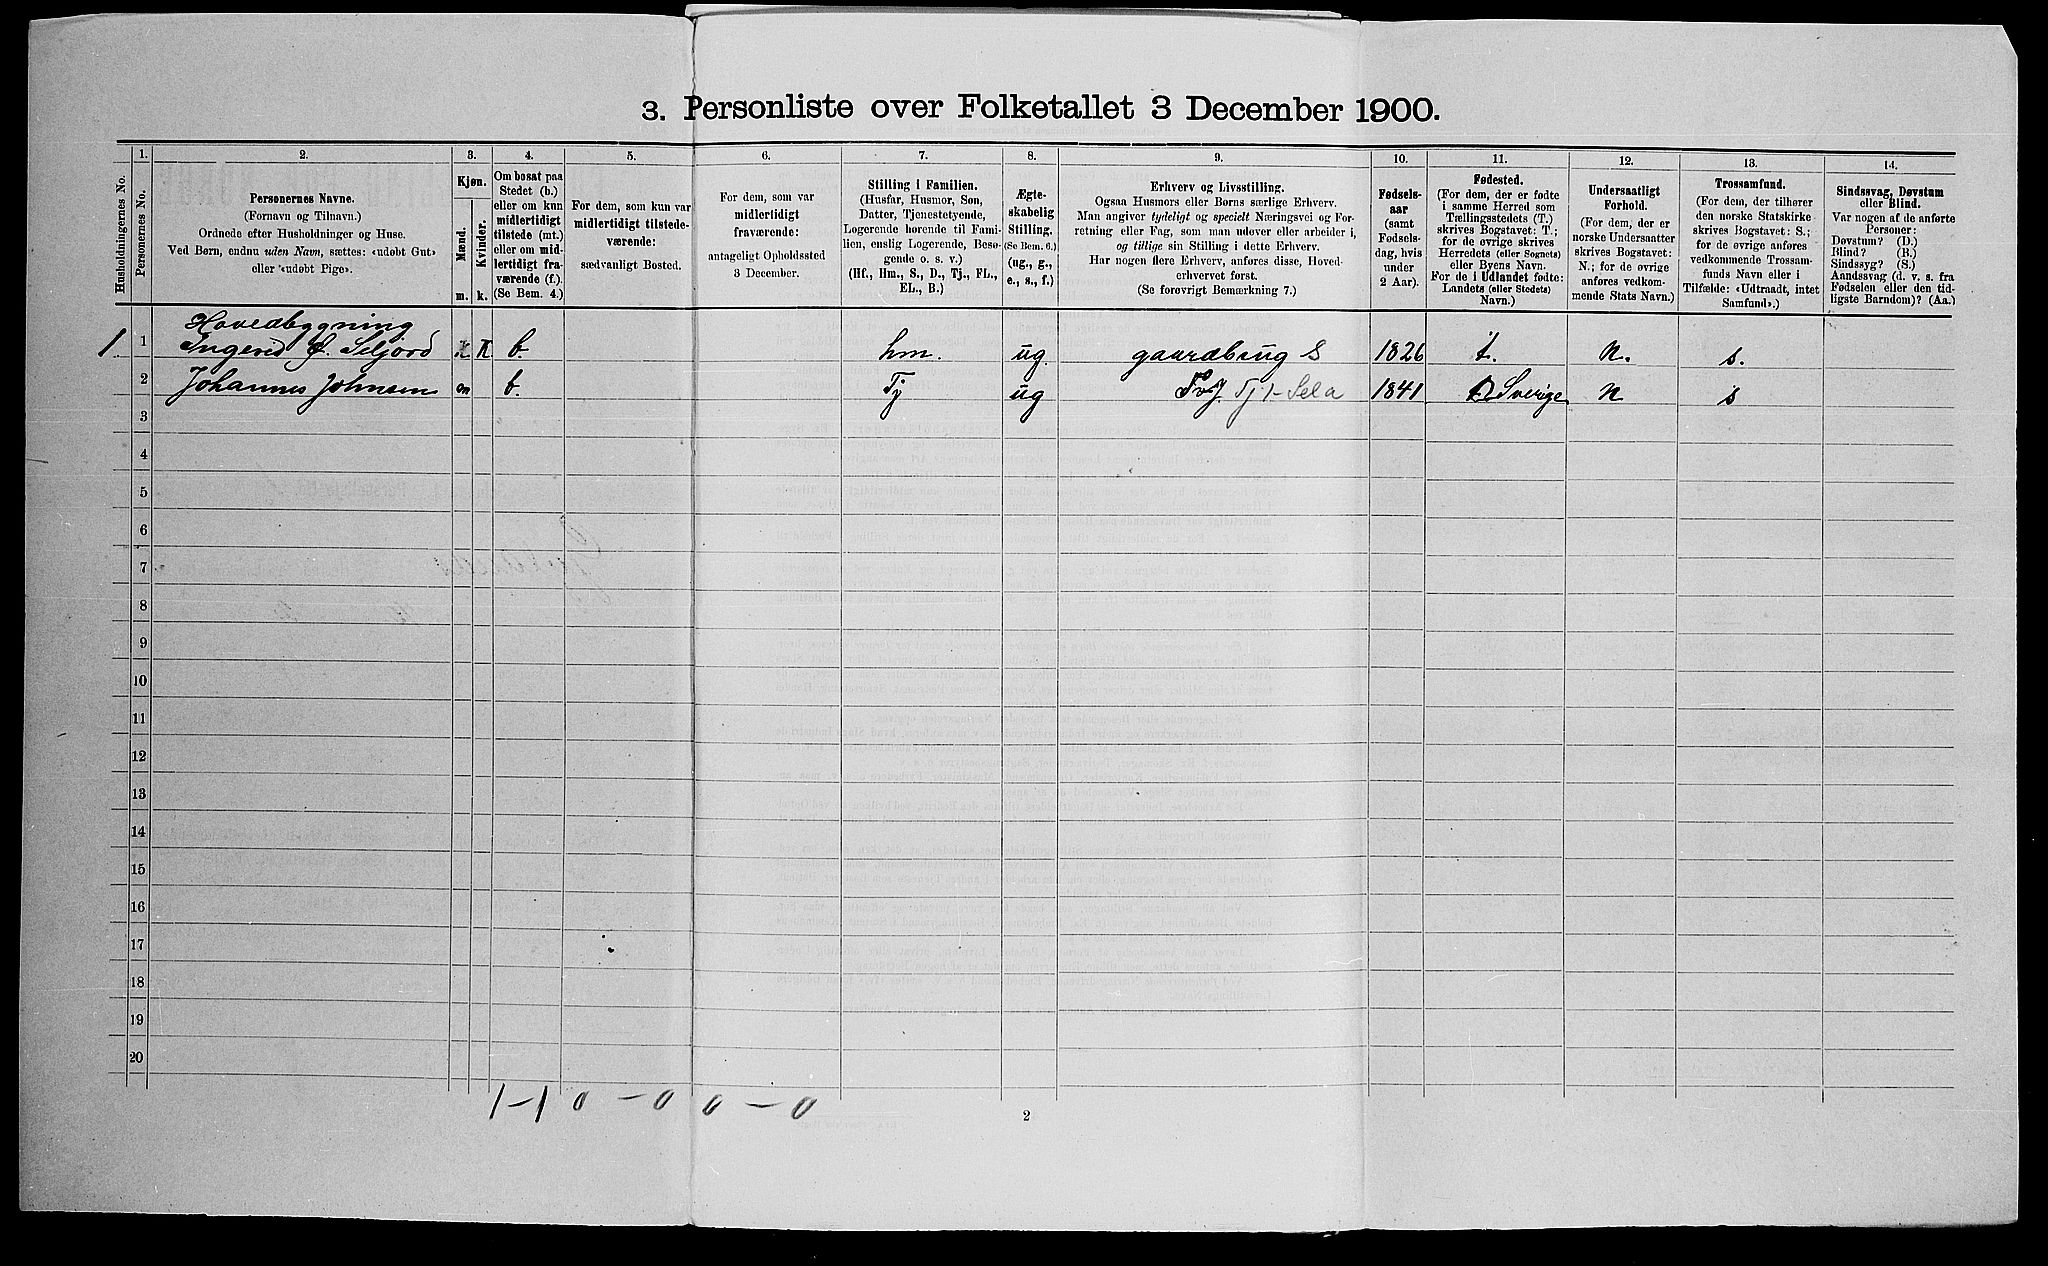 3. Personliste over Folketallet 3 December 1900.
Husholdningernes No.
1.
Personernes No.
2.
Personernes Navne.
(Fornavn og Tilnavn.)
Ordnede efter Husholdninger og Huse.
Ved Børn, endnu uden Navn, sættes: «udøbt Gut»
eller «udøbt Pige».
3.
Kjøn.
Mænd.
Kvinder.
m. k.
4.
Om bosat paa
Stedet (b.)
eller om kun
midlertidigt
tilstede (mt.)
eller om mid-
lertidigt fra-
værende (f.).
(Se Bem. 4.)
5.
For dem, som kun var
midlertidigt tilstede-
værende:
sædvanligt Bosted.
6.
For dem, som var
midlertidigt
fraværende:
antageligt Opholdssted
3 December.
7.
Stilling i Familien.
(Husfar, Husmor, Søn,
Datter, Tjenestetyende,
Logerende hørende til Fami-
lien, enslig Logerende, Besø-
gende o. s. v.)
(Hf., Hm., S., D., Tj., FL.,
EL., B.)
8.
Ægte-
skabelig
Stilling.
(Se Bem. 6.)
(ug., g.,
e., s., f.)
9.
Erhverv og Livsstilling.
Ogsaa Husmors eller Børns særlige Erhverv.
Man angiver tydeligt og specielt Næringsvei og For-
retning eller Fag, som man udøver eller arbeider i,
og tillige sin Stilling i dette Erhverv.
Har nogen flere Erhverv, anføres disse, Hoved-
erhvervet først.
(Se forøvrigt Bemærkning 7.)
10.
Fødsels-
aar
(samt
Fødsels-
dag, hvis
under
2 Aar).
11.
Fødested.
(For dem, der er fødte
i samme Herred som
Tællingsstedets (T.)
skrives Bogstavet: T.;
for de øvrige skrives
Herredets (eller Sognets)
eller Byens Navn.
For de i Udlandet fødte:
Landets (eller Stedets)
Navn.)
12.
Undersaatligt
Forhold.
(For dem, der er
norske Undersaatter
skrives Bogstavet:
N.; for de øvrige
anføres vedkom-
mende Stats Navn.)
13.
Trossamfund.
(For dem, der tilhører
den norske Statskirke
skrives Bogstavet: S.;
for de øvrige anføres
vedkommende Trossam-
funds Navn eller i
Tilfælde: «Udtraadt, intet
Samfund».)
14.
Sindssvag, Døvstum
eller Blind.
Var nogen af de anførte
Personer:
Døvstum? (D.)
Blind? (B.)
Sindssyg? (S.)
Aandssvag (d. v. s. fra
Fødselen eller den tid-
ligste Barndom)? (Aa.)
Hovedbygning
1 1 Ingerid O. Seljord K b. hm. ug. gaardbrug S 1826 t. n. s.
2 Johannes Johnsen m b. Tj ug Tj - Sela 1841 Sverige n s
3
4
5
6
7
8
9
10
11
12
13
14
15
16
17
18
19
20
1 - 1 0 - 0 0 - 0
2